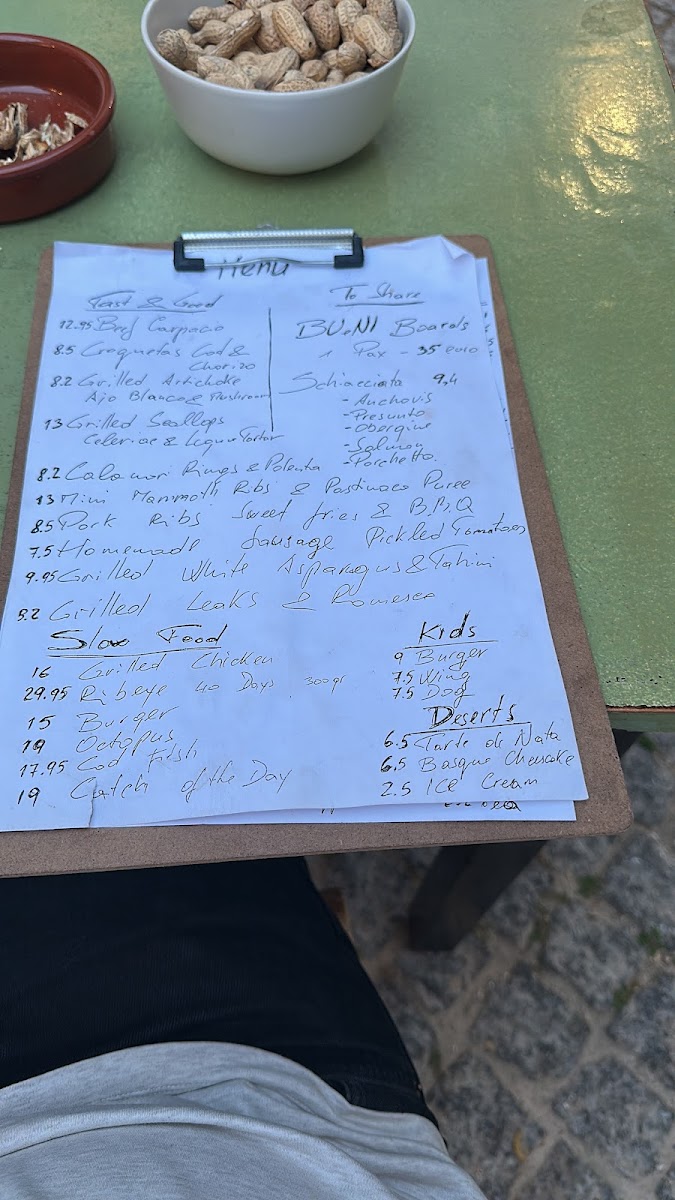 Menu
Fast & Good
12.95 Beef Carpacio
8.5 Croquetas Cod &
Chorizo
8.2 Grilled Artichoke
Ajo Blanco & Mushroom
13 Grilled Scallops
Celeriac & Tartar
To Share
BU.NI Boards
1 Pax - 35 euro
Schiacciata 9,4
- Anchovis
- Presunto
- Obergine
- Salmon
- Porchetta
8.2 Calamari Rings & Polenta
13 Mini Mammoth Ribs & Pastinaca Puree
8.5 Pork Ribs Sweet fries & B,B,Q
7.5 Homemade Sausage Pickled Tomatoes
9.95 Grilled White Asparagus & Tahini
Grilled Leaks & Romesco
Slow Food
16 Grilled Chicken
29.95 Ribeye 40 Days 300gr
15 Burger
19 Octopus
17.95 Cod Fish
19 Catch of the Day
Kids
9 Burger
7.5 Wing
7.5 Dog
Deserts
6.5 Tarte de Nata
6.5 Basque Chescake
2.5 ICE Cream